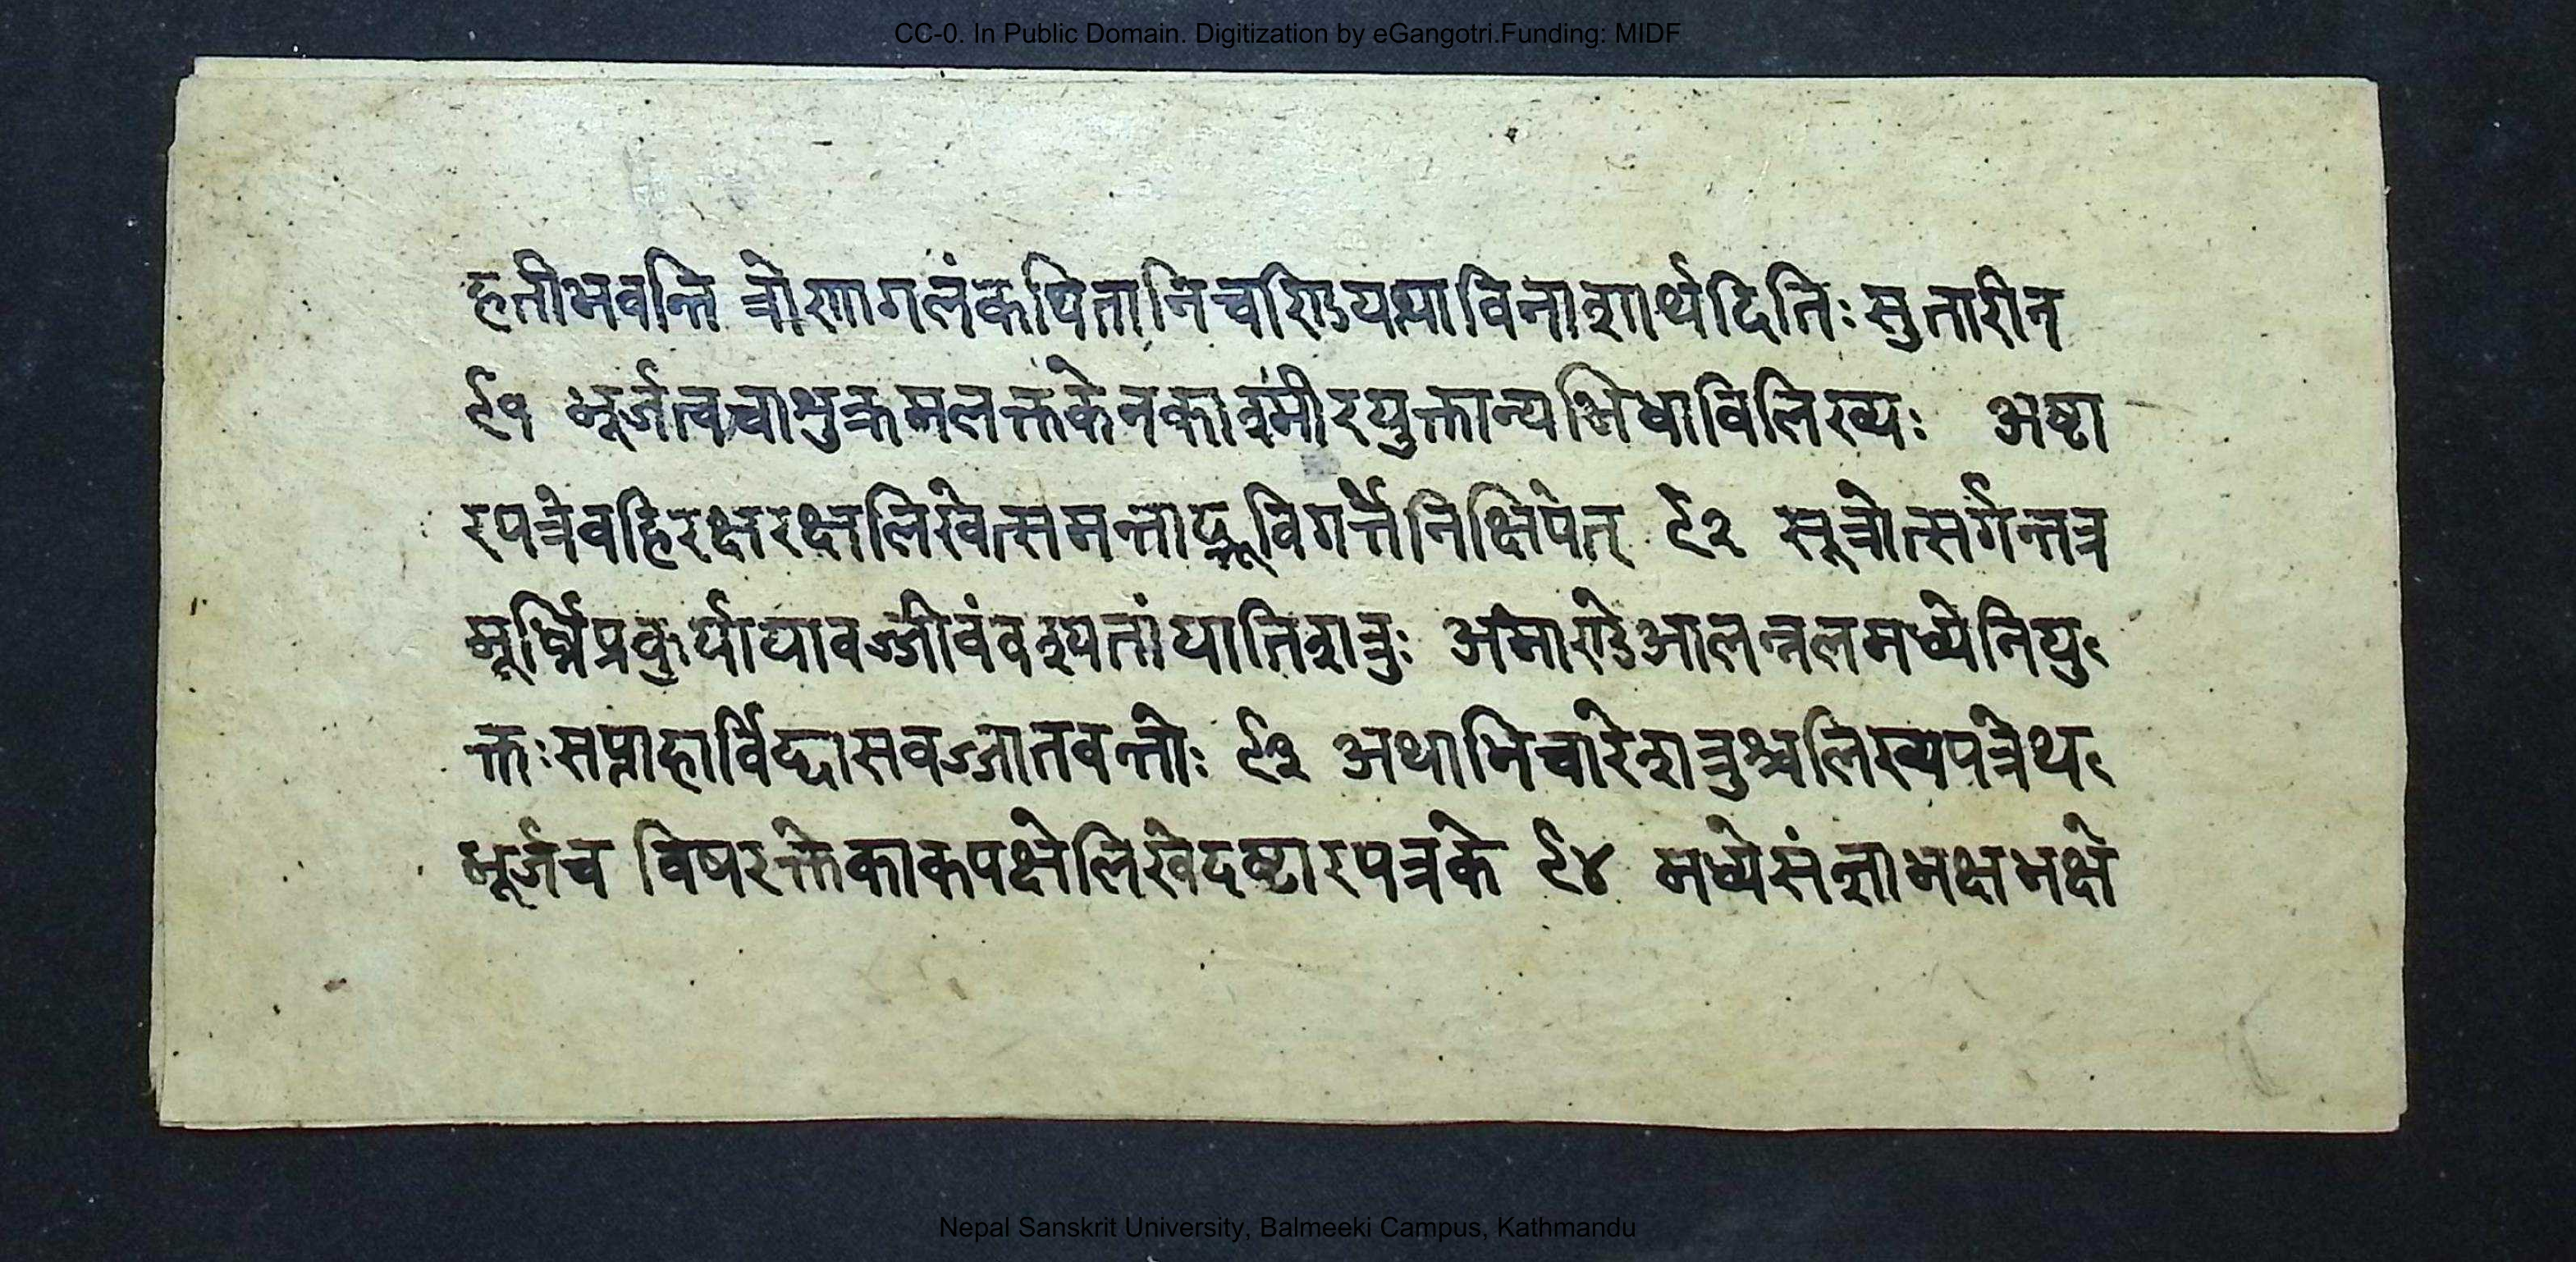 CC-0. In Public Domain. Digitization by eGangotri.Funding: MIDF
हृतीभवन्ति त्रोणागलंकपितानिचरिण्डयष्पाविनाशार्थदितिः सुतारीन
९१ भूर्जत्वचाभुक्रमलक्तकेनकाश्मीरयुक्तान्यभिधाविलिख्यः अष्टा
रपत्रेवहिरक्षरक्षलिखेत्समन्ताद्भूविगर्त्तेनिक्षिपेत् ९२ सूत्रोत्सर्गन्तत्र
मूर्ध्निप्रकुर्यायावज्जीवंवश्यतांयातिशत्रुः अमाराडेआलन्नलमध्येनियु
क्तः सप्ताहार्विद्द्यासवज्जातवन्तोः ९३ अथाभिचारेशत्रुश्चलिख्यपत्रेथ
भूर्जच विषरक्तेकाकपक्षेलिखेदष्टारपत्रके ९४ मध्येसंज्ञाभक्षभक्षे
Nepal Sanskrit University, Balmeeki Campus, Kathmandu